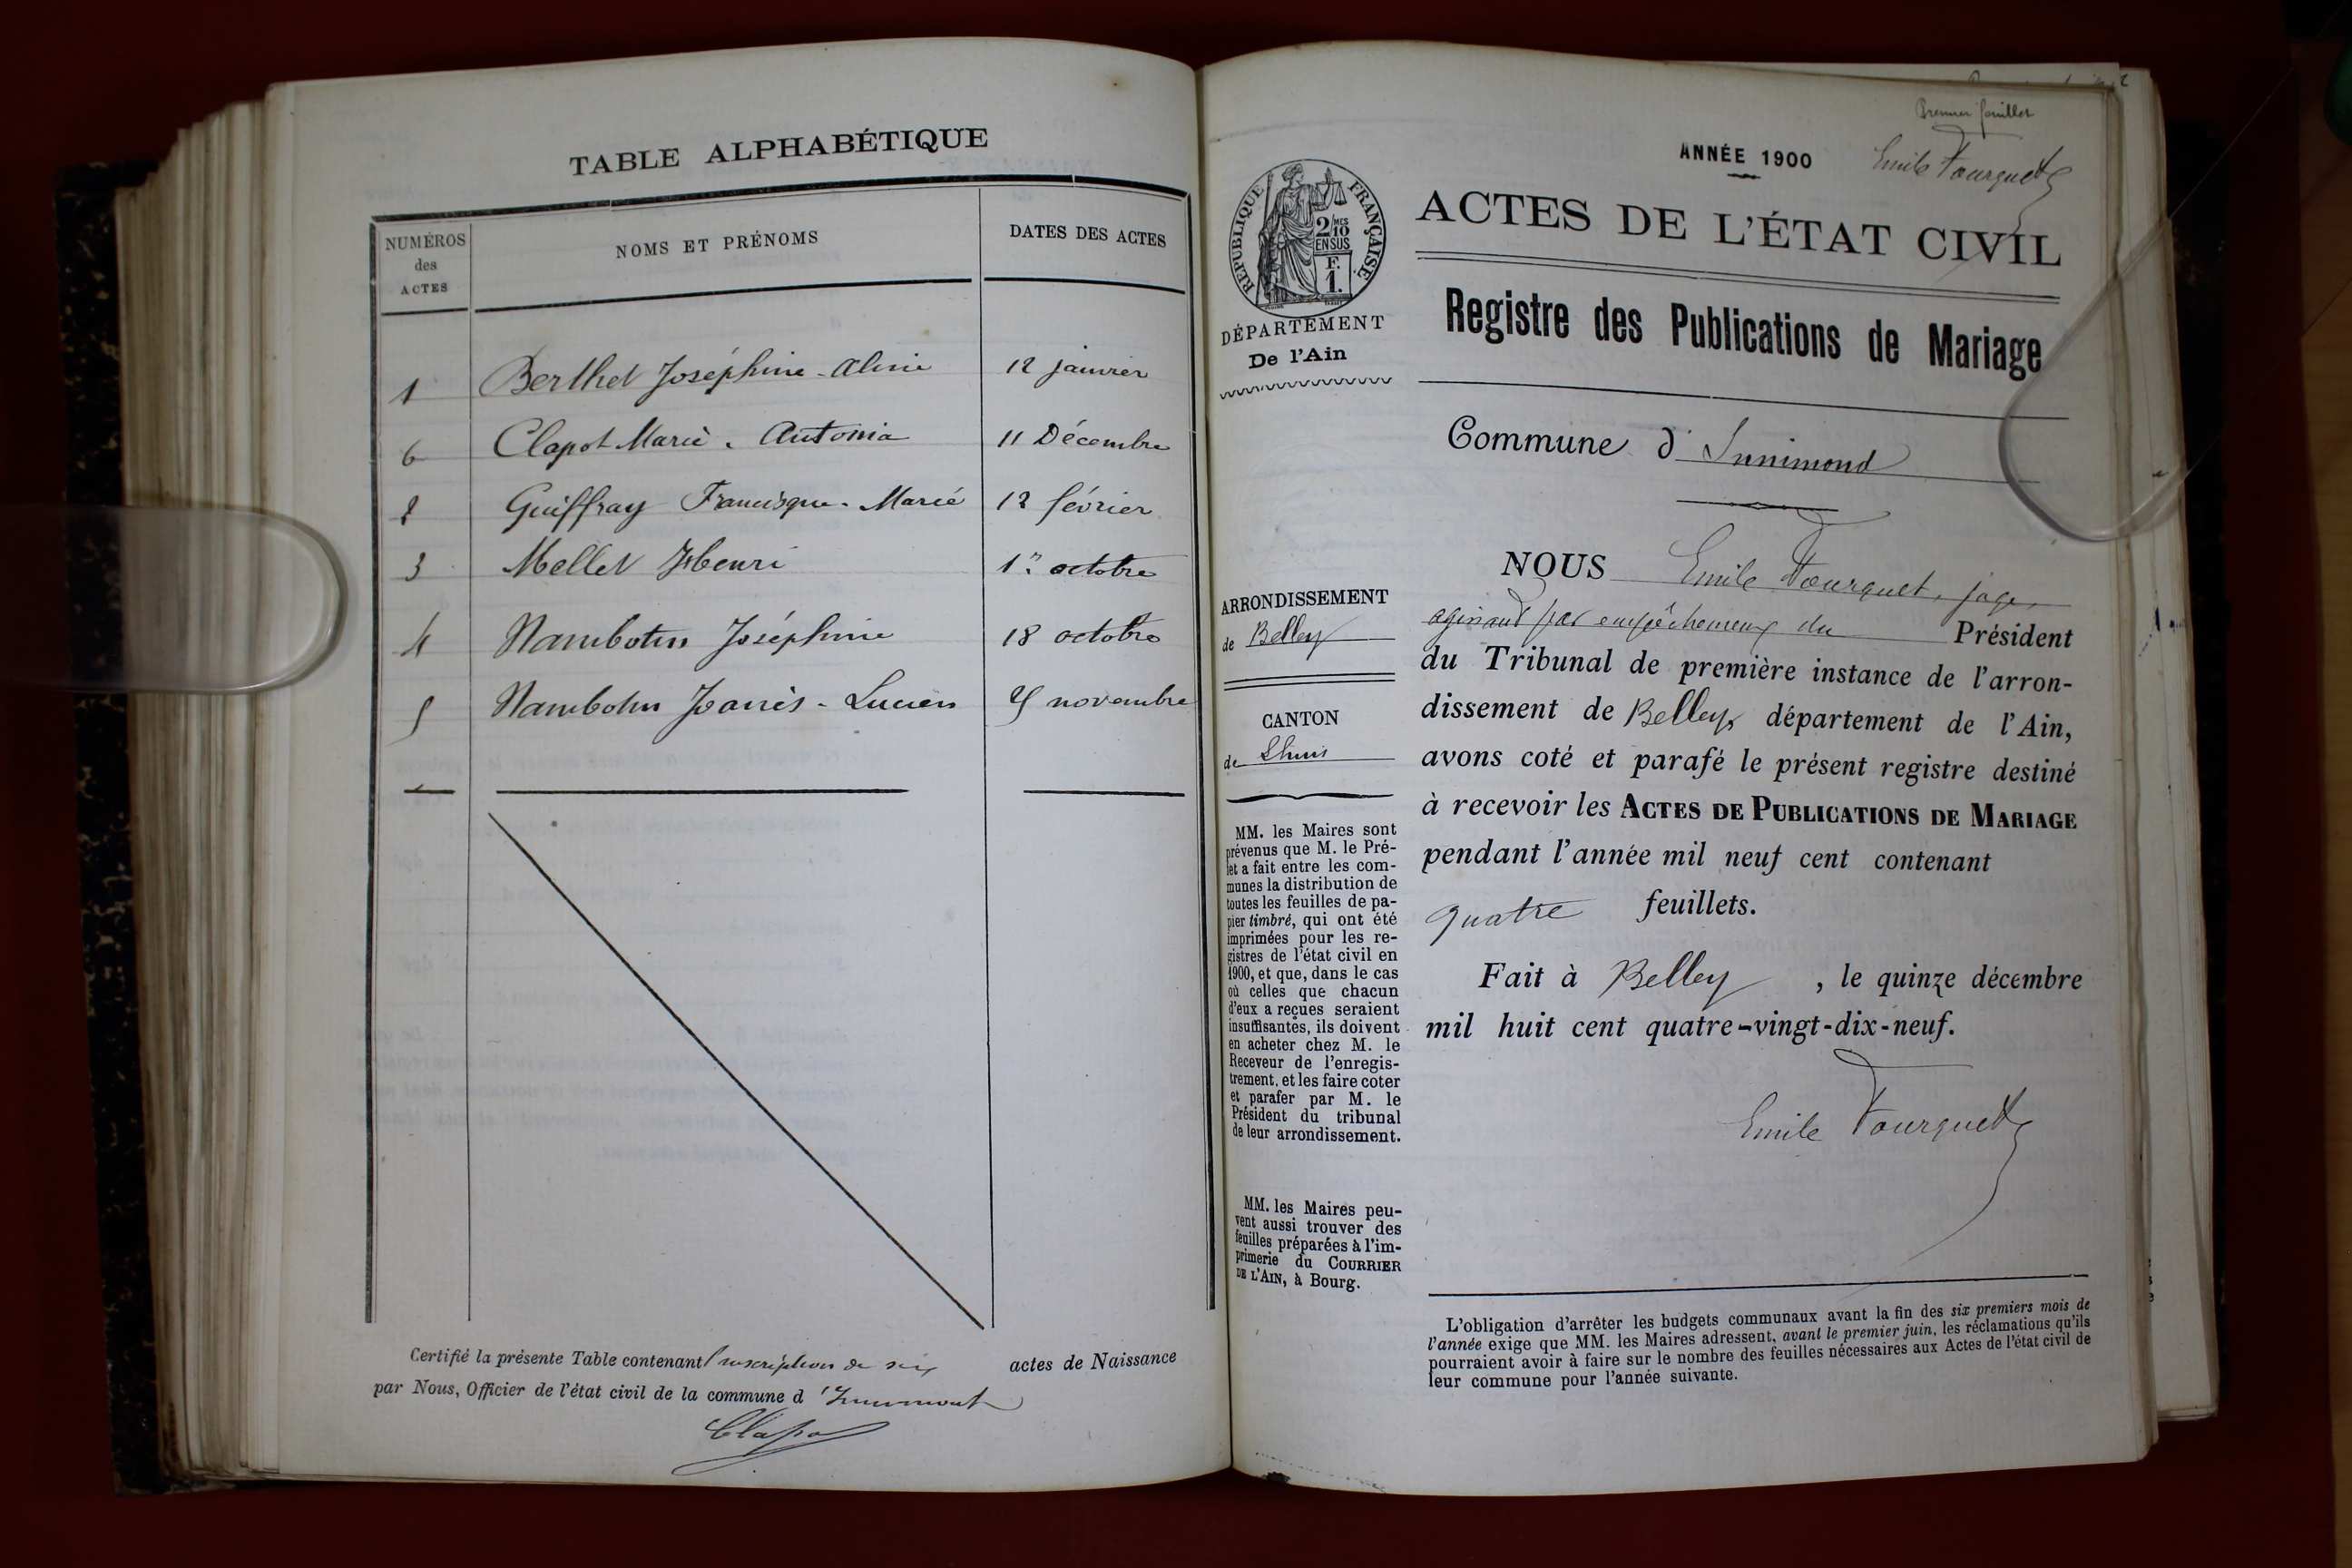 TABLE ALPHABÉTIQUE
NUMÉROS
des
ACTES
NOMS ET PRÉNOMS
DATES DES ACTES
1 Berthet Joséphine-Aline 12 janvier
6 Clapot Marie-Antonia 11 Décembre
2 Guiffray Francisque-Marie 12 février
3 Mellet Henri 1er octobre
4 Nambotin Joséphine 18 octobre
5 Nambotin Joanès-Lucien novembre
Certifié la présente Table contenant l'inscription de six actes de Naissance
par Nous, Officier de l'état civil de la commune d'Innimont
Clapot
Premier feuillet
ANNÉE 1900
Emile Fourquet
RÉPUBLIQUE FRANÇAISE
2/10 MES
EN SUS
F.
1.
ACTES DE L'ÉTAT CIVIL
DÉPARTEMENT
De l'Ain
Registre des Publications de Mariage
Commune d'Innimond
ARRONDISSEMENT
de Belley
CANTON
de Lhuis
MM. les Maires sont
prévenus que M. le Pré-
fet a fait entre les com-
munes la distribution de
toutes les feuilles de pa-
pier timbré, qui ont été
imprimées pour les re-
gistres de l'état civil en
1900, et que, dans le cas
où celles que chacun
d'eux a reçues seraient
insuffisantes, ils doivent
en acheter chez M. le
Receveur de l'enregis-
trement, et les faire coter
et parafer par M. le
Président du tribunal
de leur arrondissement.
MM. les Maires peu-
vent aussi trouver des
feuilles préparées à l'im-
primerie du COURRIER
DE L'AIN, à Bourg.
NOUS Emile Fourquet, juge,
agissant par empêchement du Président
du Tribunal de première instance de l'arron-
dissement de Belley, département de l'Ain,
avons coté et parafé le présent registre destiné
à recevoir les ACTES DE PUBLICATIONS DE MARIAGE
pendant l'année mil neuf cent contenant
quatre feuillets.
Fait à Belley, le quinze décembre
mil huit cent quatre-vingt-dix-neuf.
Emile Fourquet
L'obligation d'arrêter les budgets communaux avant la fin des six premiers mois de
l'année exige que MM. les Maires adressent, avant le premier juin, les réclamations qu'ils
pourraient avoir à faire sur le nombre des feuilles nécessaires aux Actes de l'état civil de
leur commune pour l'année suivante.